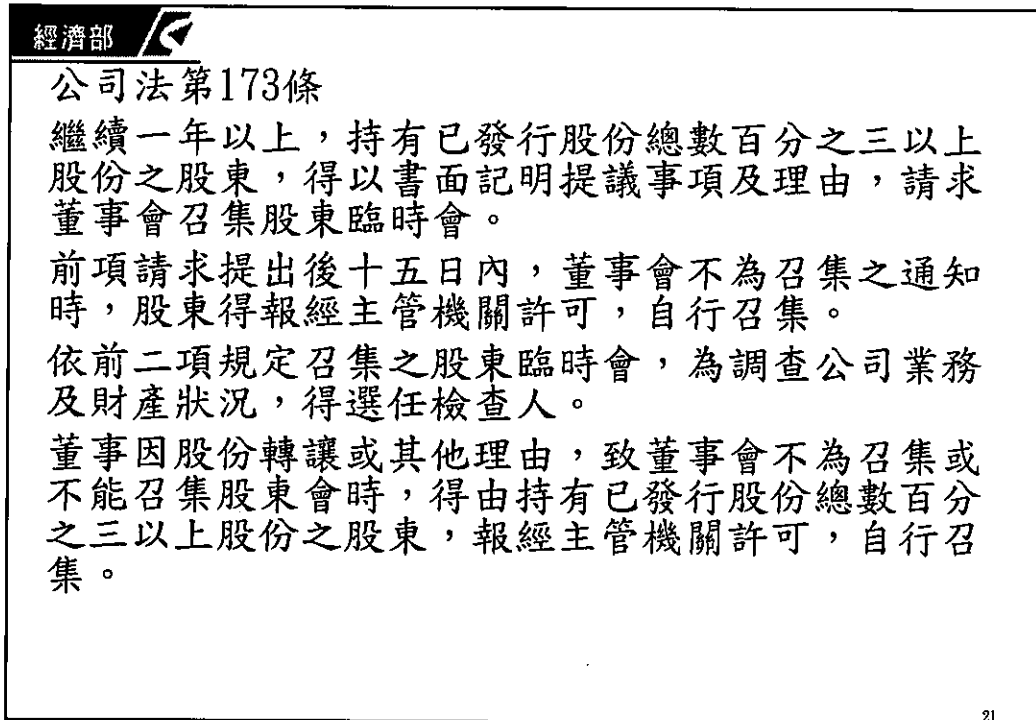 經濟部
公司法第173條
繼續一年以上，持有已發行股份總數百分之三以上
股份之股東，得以書面記明提議事項及理由，請求
董事會召集股東臨時會。
前項請求提出後十五日內，董事會不為召集之通知
時，股東得報經主管機關許可，自行召集。
依前二項規定召集之股東臨時會，為調查公司業務
及財產狀況，得選任檢查人。
董事因股份轉讓或其他理由，致董事會不為召集或
不能召集股東會時，得由持有已發行股份總數百分
之三以上股份之股東，報經主管機關許可，自行召
集。
21